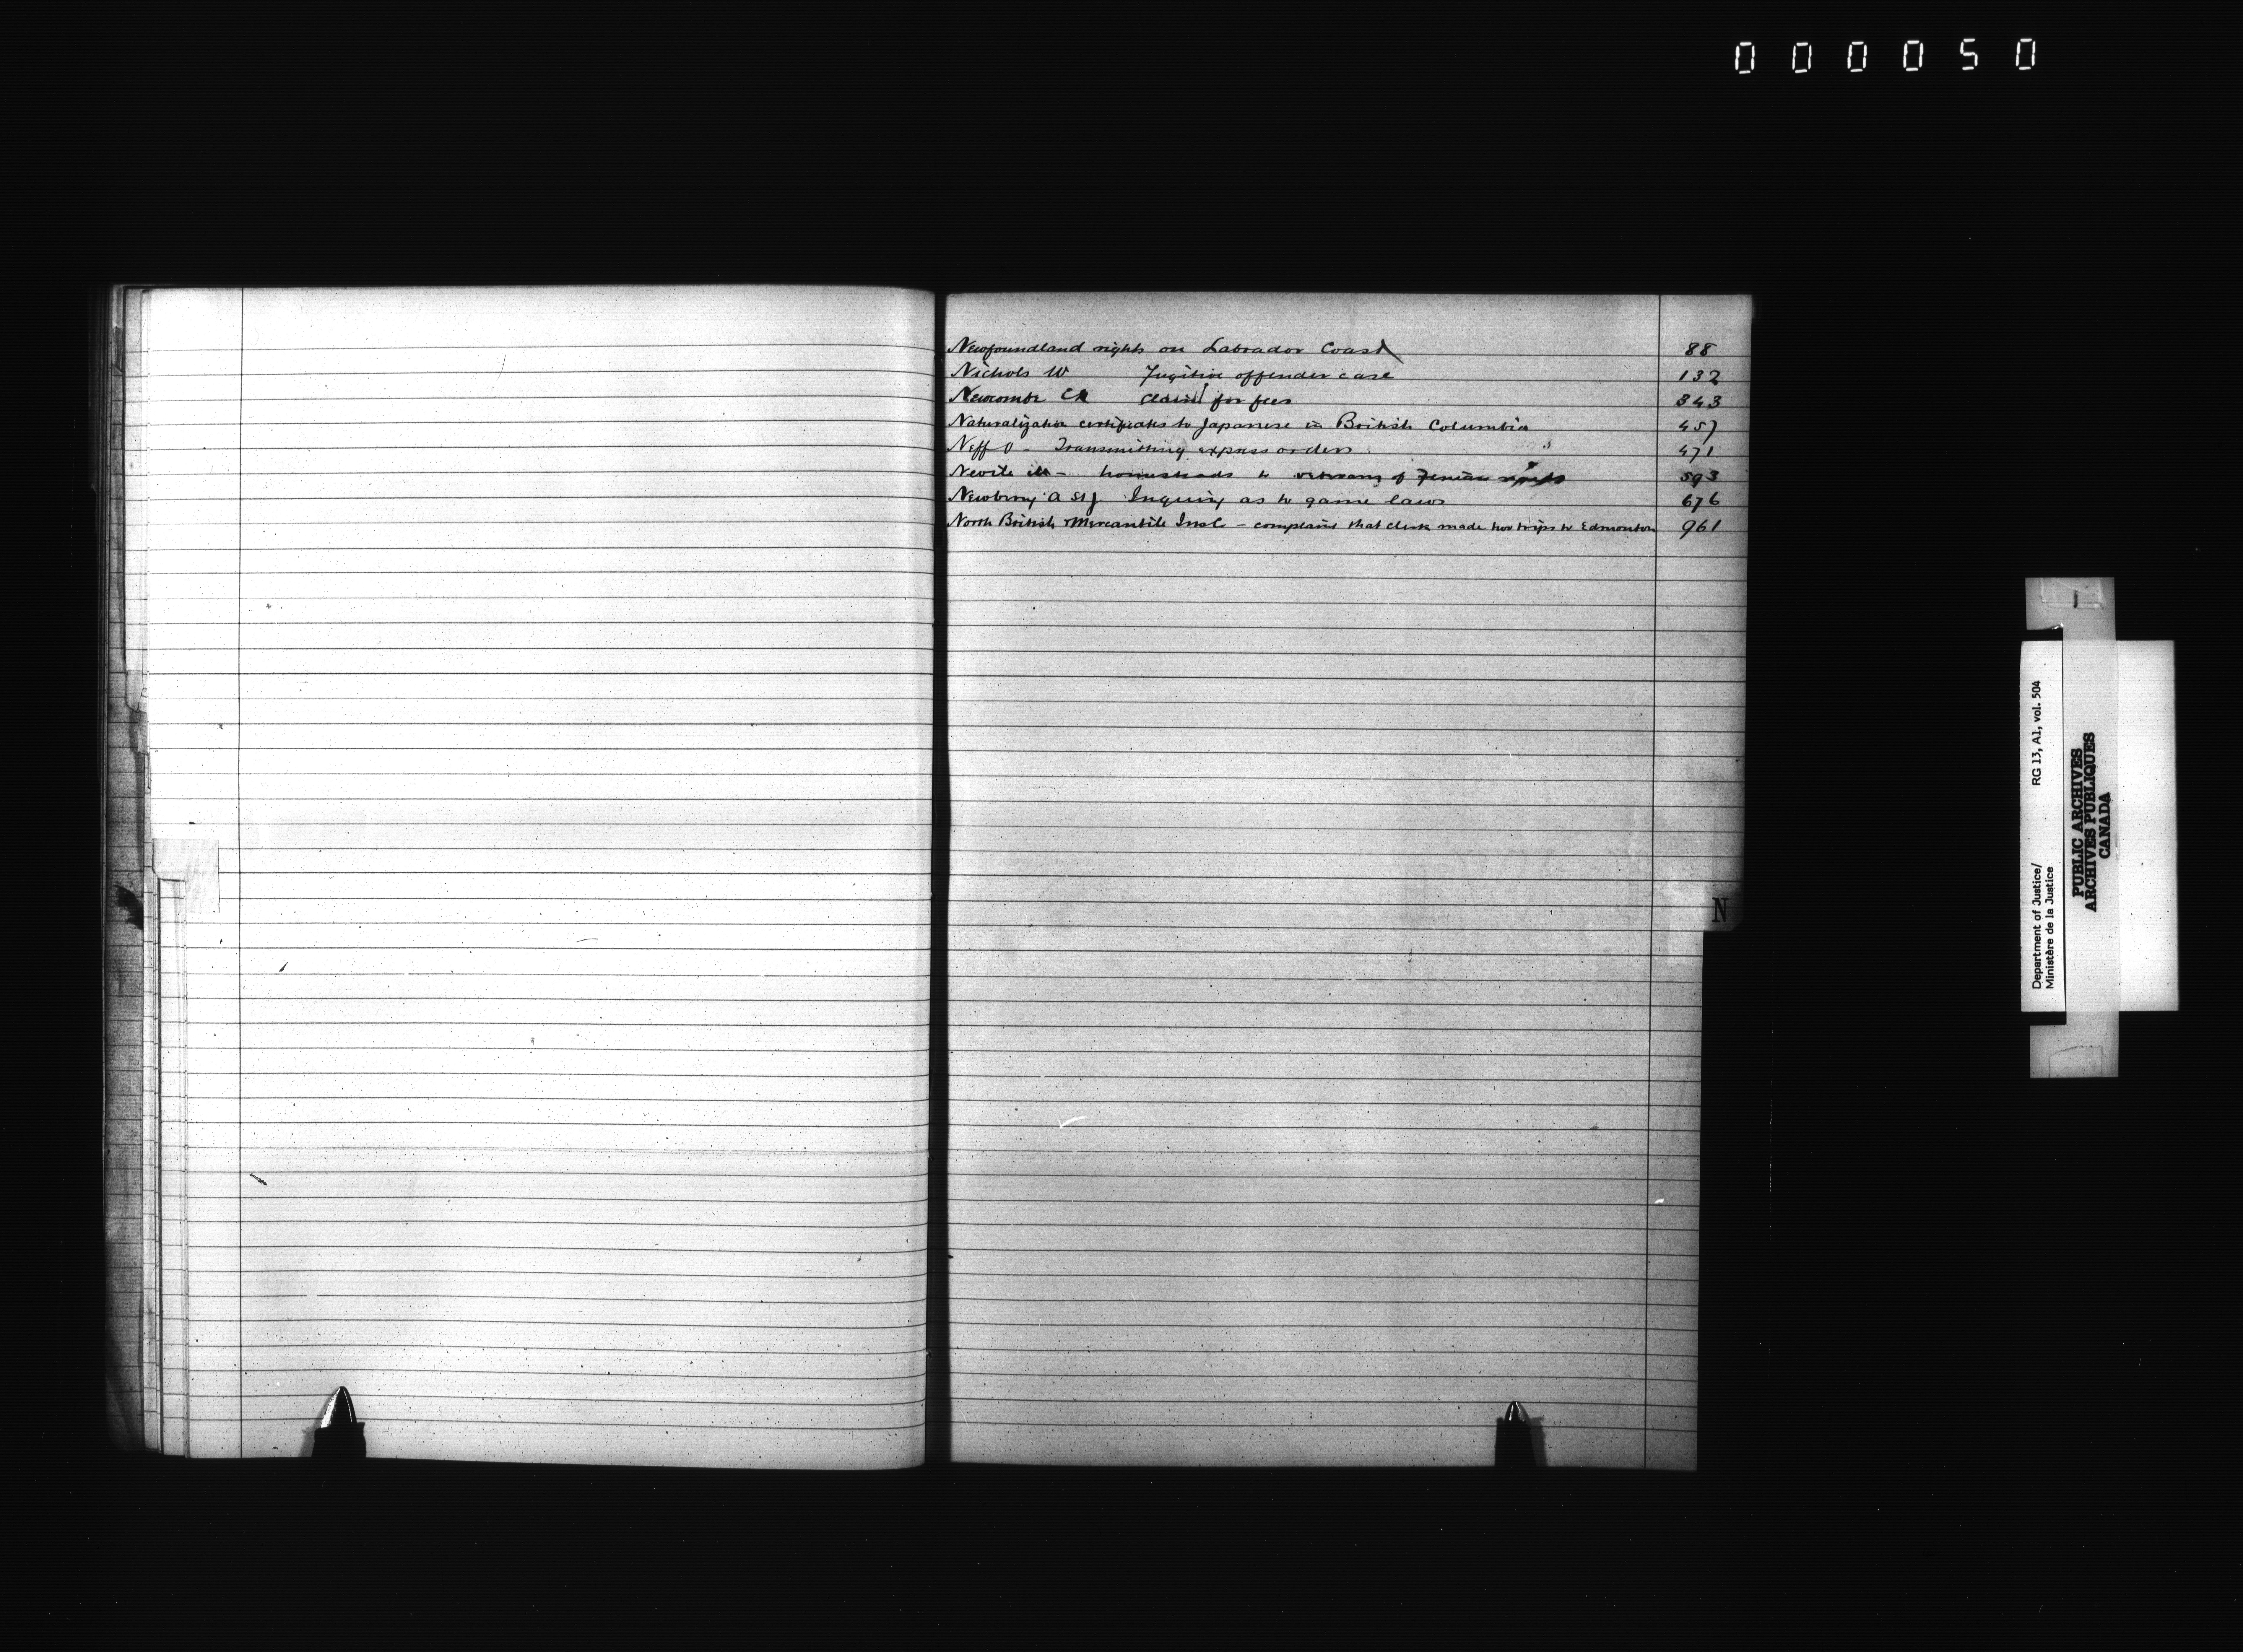 000050
Newfoundland rights on Labrador Coast 88
Nichols W Fugitive offender case 132
Newcombe claim for fees 343
Naturalization certificates to Japanese in British Columbia 457
Neff O - Transmitting express orders 471
Nevile - homesteads to veterans of Fenian 593
Newberry A St J Inquiry as to game laws 676
North British & Mercantile Ins Co - complains that clerk made two trips to Edmonton 961
N
Department of Justice/ RG 13, A1, vol. 504
Ministère de la Justice
PUBLIC ARCHIVES
ARCHIVES PUBLIQUES
CANADA